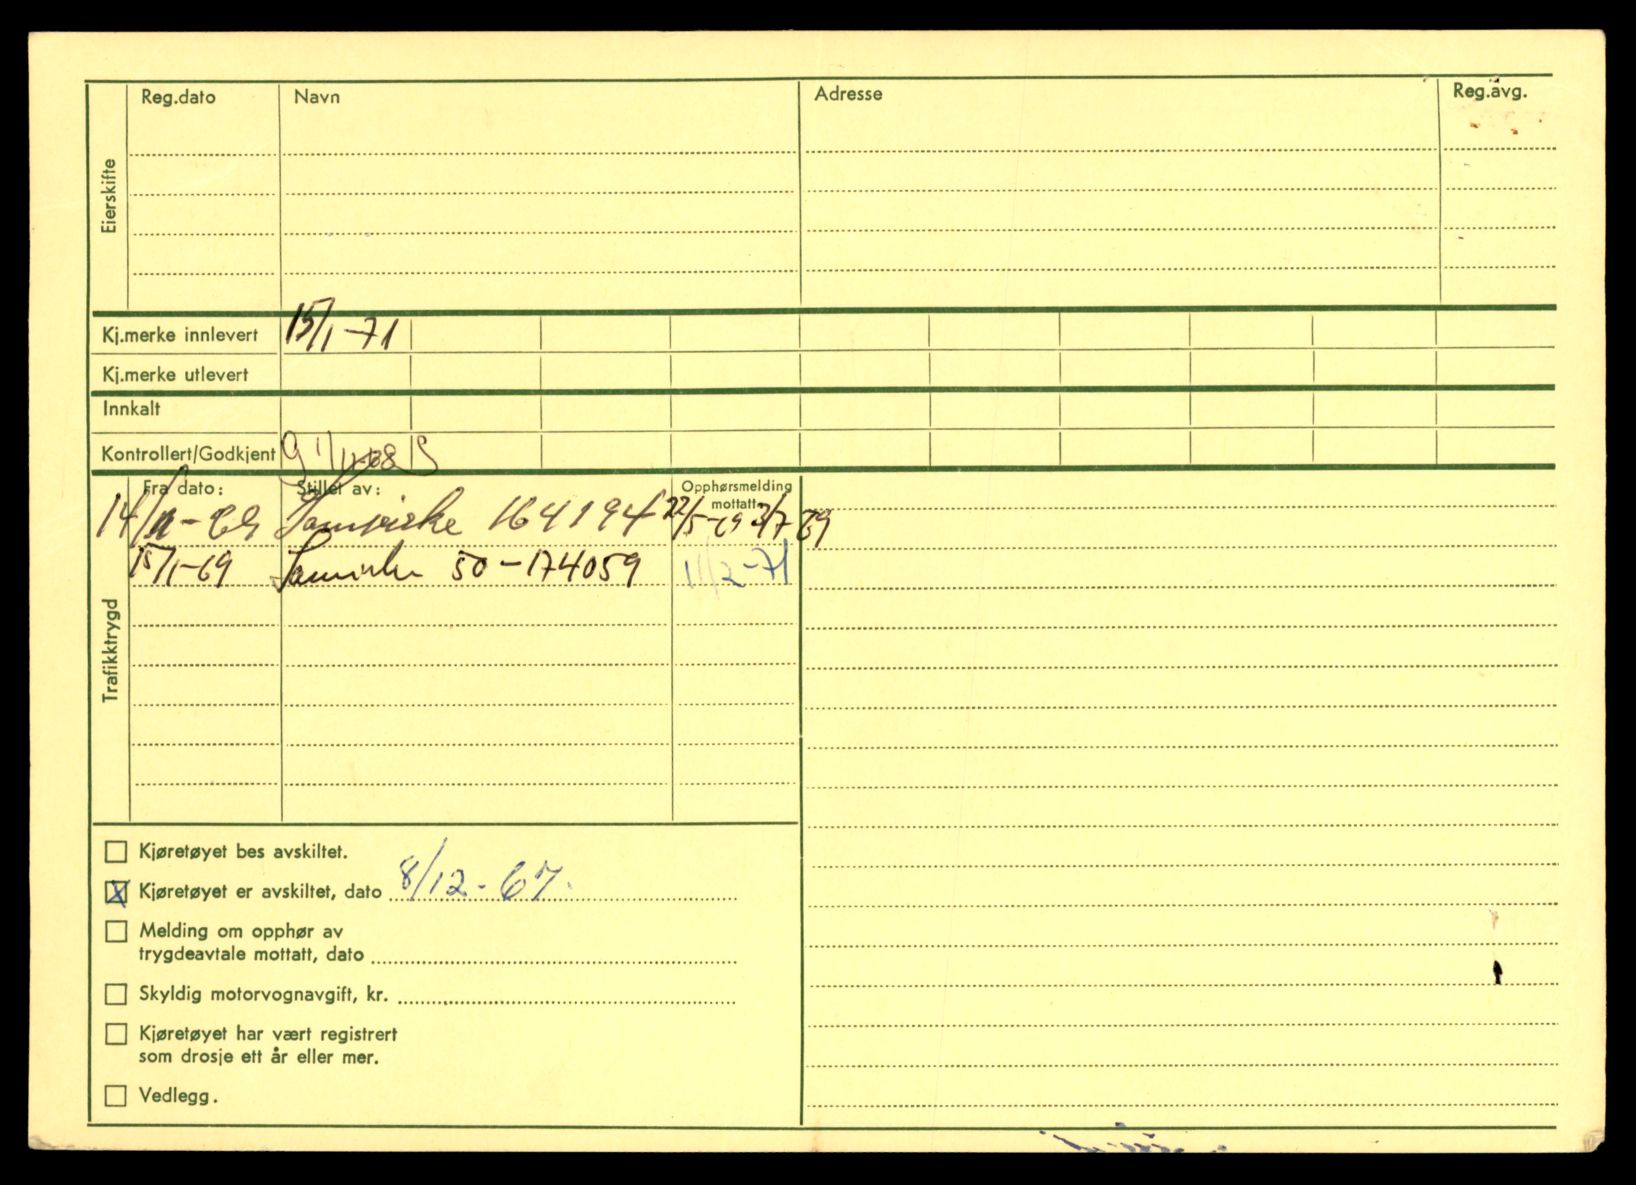 Reg.dato Navn Adresse Reg.avg.
Eierskifte
Kj.merke innlevert 15/1-71
Kj.merke utlevert
Innkalt
Kontrollert/Godkjent G 1/11-68 S
Fra dato: Stillet av: Opphørsmelding
mottatt
14/11-69 Samvirke 164194 22/5-69 3/7 69
15/1-69 Samvirke 50-174059 11/2-71
Trafikktrygd
Kjøretøyet bes avskiltet.
X Kjøretøyet er avskiltet, dato 8/12-67.
Melding om opphør av
trygdeavtale mottatt, dato
Skyldig motorvognavgift, kr.
Kjøretøyet har vært registrert
som drosje ett år eller mer.
Vedlegg.